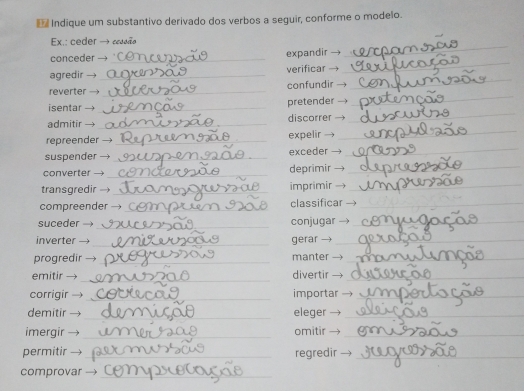 17 Indique um substantivo derivado dos verbos a seguir, conforme o modelo.
Ex.: ceder → cessão
conceder → concessão
agredir → agressão
reverter → reversão
isentar → isenção
admitir → admissão
repreender → Repreensão
suspender → suspensão
converter → conversão
transgredir → transgressão
compreender → compreensão
suceder → sucessão
inverter → inversão
progredir → progressão
emitir → emissão
corrigir → correção
demitir → demição
imergir → imersão
permitir → permissão
comprovar → comprovação
expandir → expansão
verificar → verificação
confundir → confunsão
pretender → pretenção
discorrer → discurso
expelir → expulsão
exceder → excesso
deprimir → depressão
imprimir → impressão
classificar →
conjugar → conjugação
gerar → geração
manter → manutenção
divertir → diverção
importar → importação
eleger → eleição
omitir → omissão
regredir → regressão